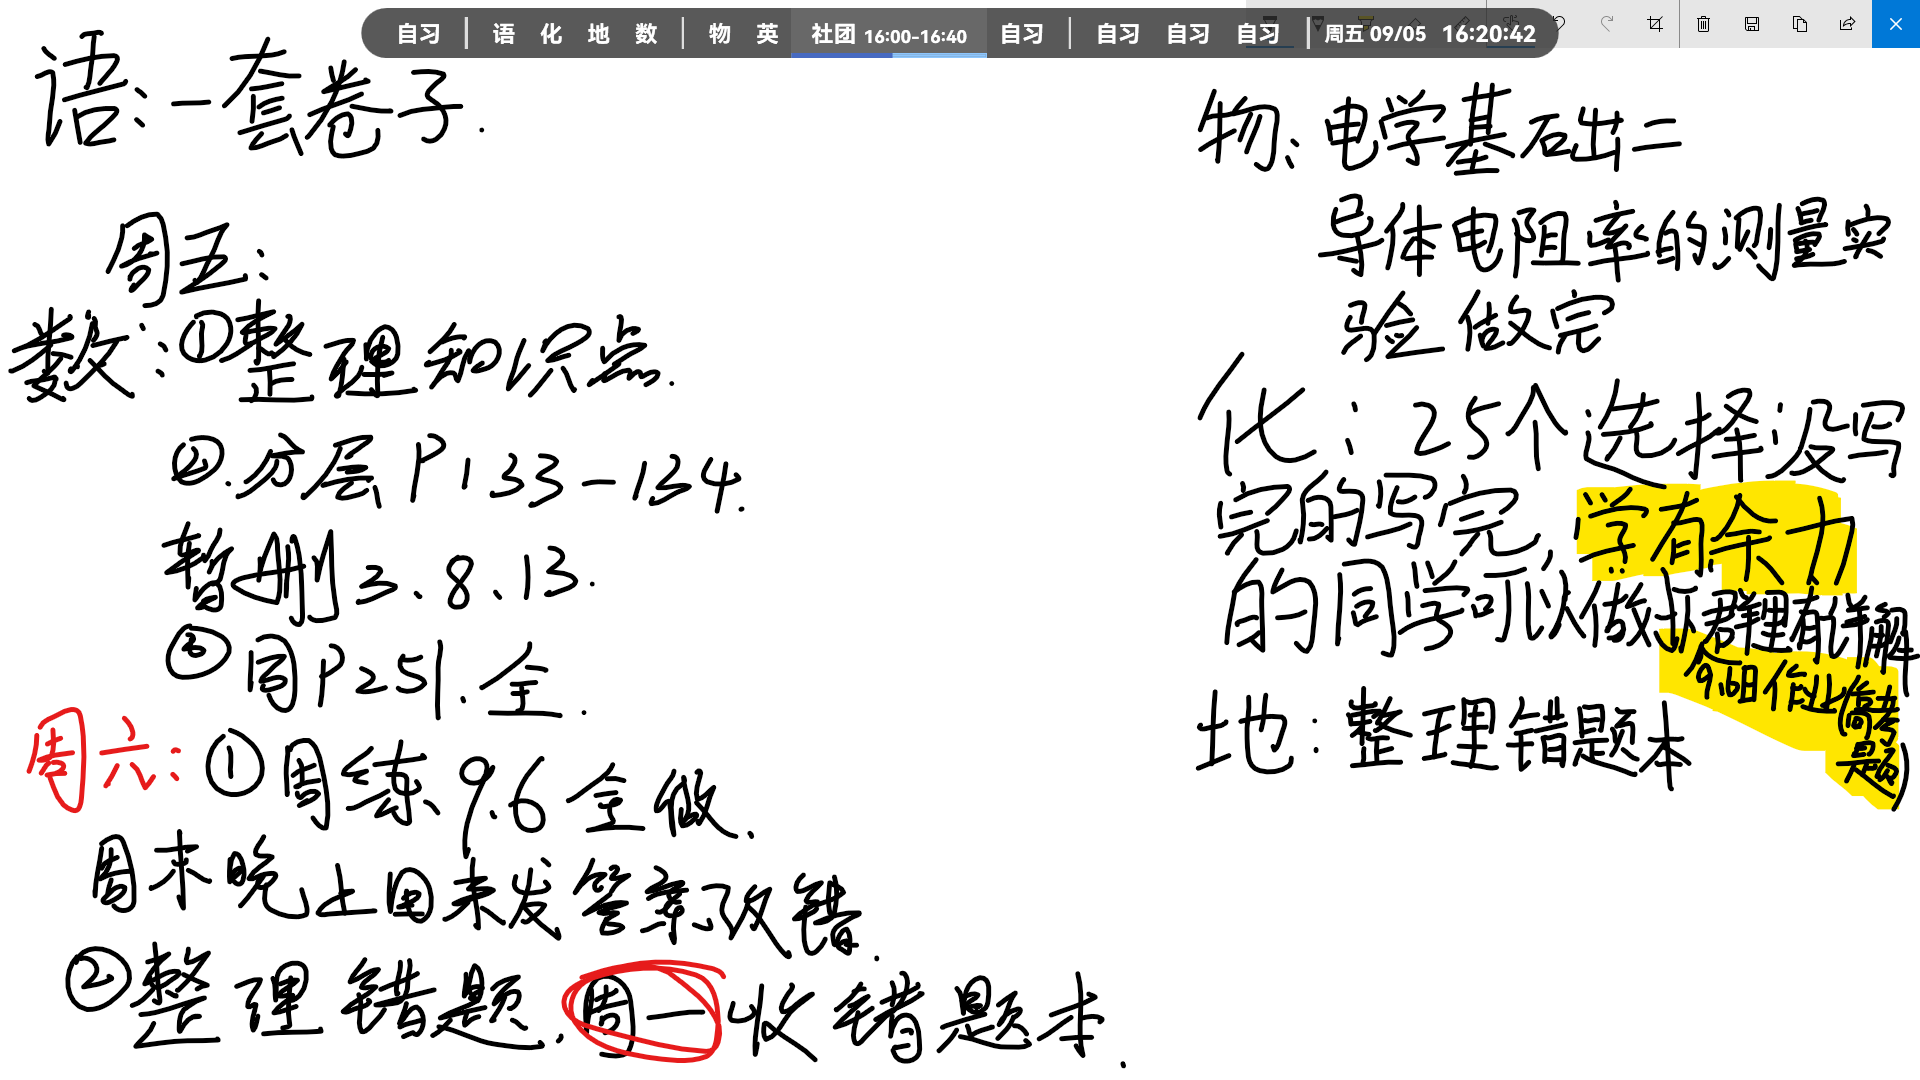 自习 | 语 化 地 数 | 物 英 社团 16:00-16:40 自习 | 自习 自习 自习 | 周五 09/05 16:20:42
语:一套卷子.
周五:
数:①整理知识点.
②.分层P133-134.
暂删3、8、13.
③同P251.全.
周六:①周练9.6全做.
周末晚上回来发答案改错.
②整理错题.周一收错题本.
物:电学基础出二
导体电阻率的测量实
验做完
化:25个选择没写
完的写完,学有余力
的同学可以做
群里有详解
9.6日作业(高考
题)
地:整理错题本